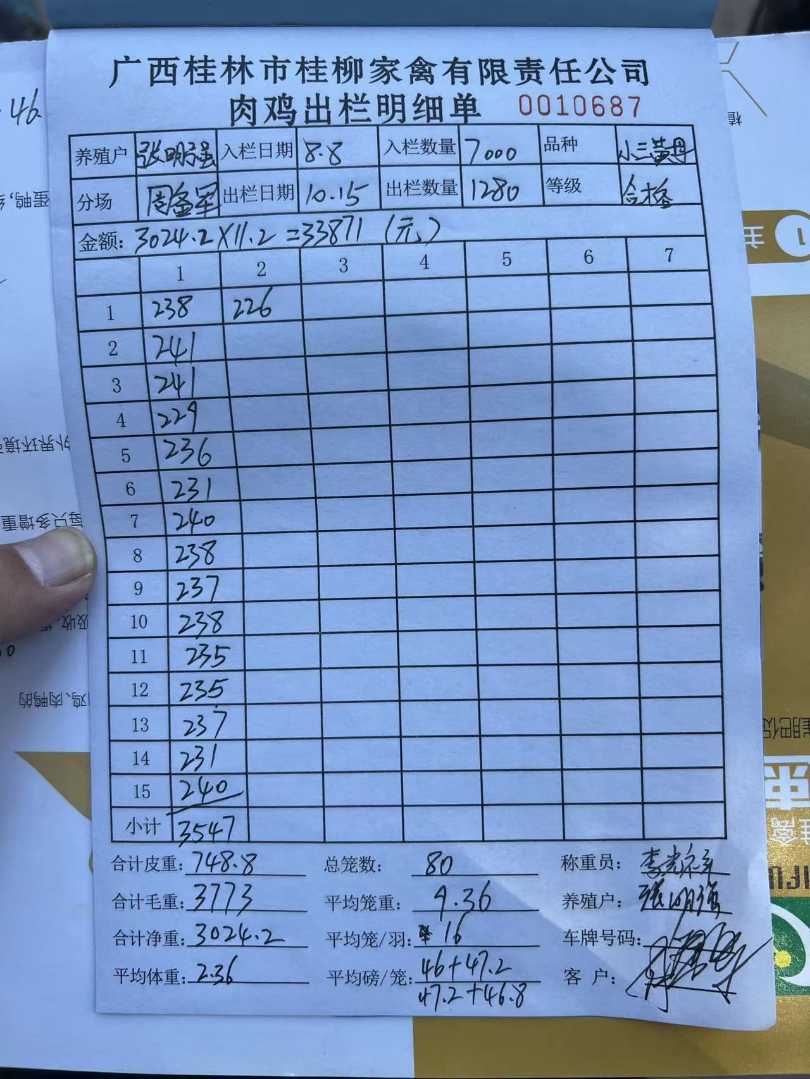 广西桂林市桂柳家禽有限责任公司
肉鸡出栏明细单 0010687
养殖户 张明强 入栏日期 8.8 入栏数量 7000 品种 小三黄母
分场 出栏日期 10.15 出栏数量 1280 等级 合格
金额: 3024.2×11.2=33871 (元)
1 2 3 4 5 6 7
1 238 226
2 241
3 241
4 229
5 236
6 231
7 240
8 238
9 237
10 238
11 235
12 235
13 237
14 231
15 240
小计 3547
合计皮重: 748.8 总笼数: 80 称重员:
合计毛重: 3773 平均笼重: 9.36 养殖户: 张明强
合计净重: 3024.2 平均笼/羽: 16 车牌号码:
平均体重: 2.36 平均磅/笼: 46+47.2 客户:
47.2+46.8
46
外界环境
每只多增重
鸡、肉鸭的
1 主